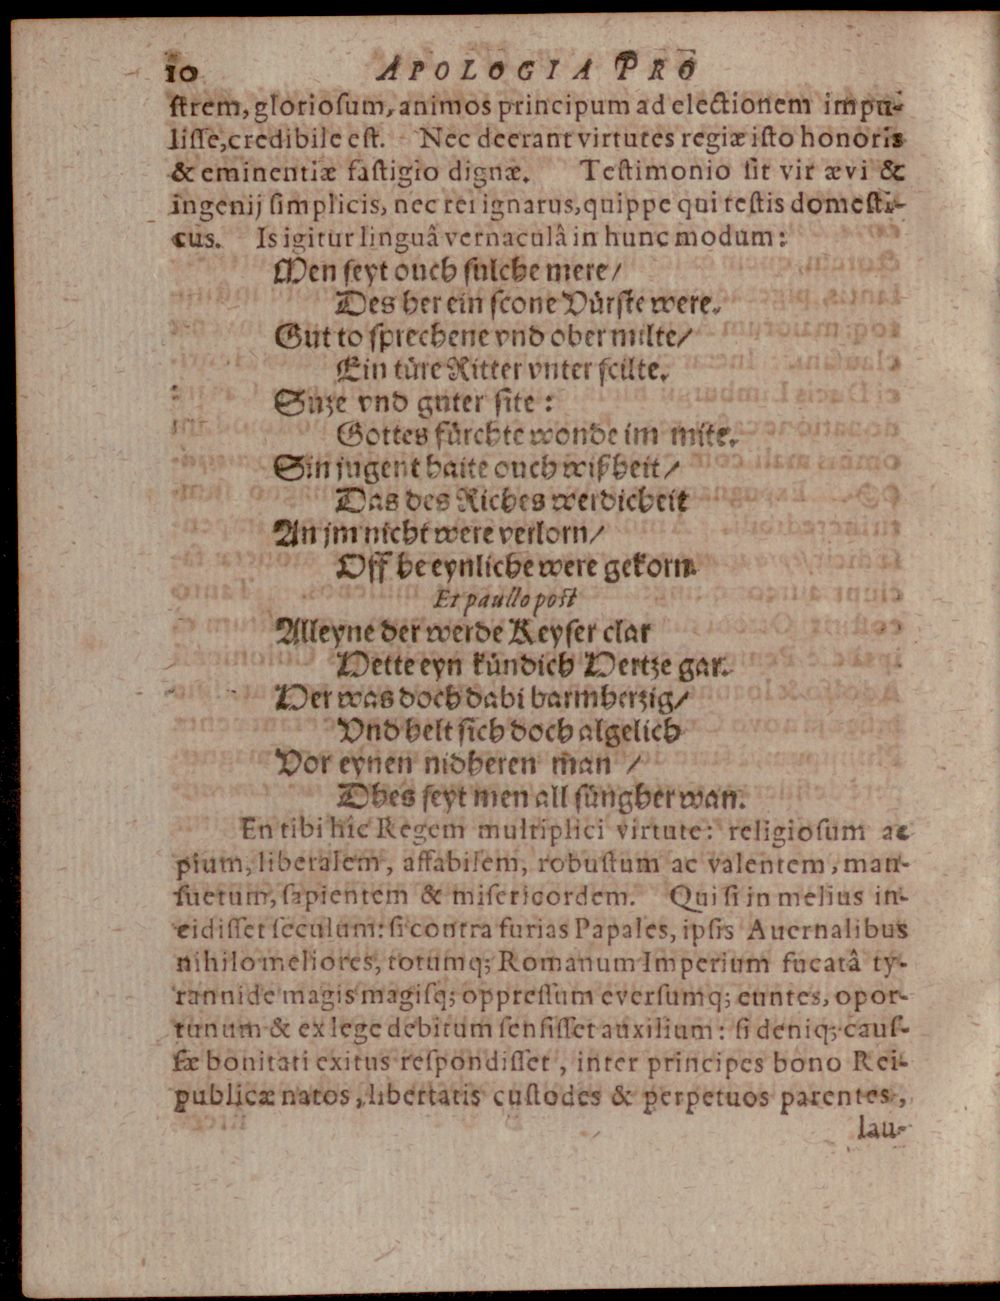 10 APOLOGIA PRO
ſtrem, glorioſum, animos principum ad electionem impu-
liſſe, credibile eſt. Nec deerant virtutes regiæ iſto honoris
& eminentiæ faſtigio dignæ. Teſtimonio ſit vir ævi &
ingenij ſimplicis, nec rei ignarus, quippe qui teſtis domeſti-
cus. Is igitur linguâ vernaculâ in hunc modum:
Men ſeyt ouch ſulche mere/
Des her ein ſcone Vürſte were.
Gut to ſprechene vnd ober milte/
Ein türe Ritter vnter ſcilte.
Suze vnd guter ſite:
Gottes fürchte wonde im mite.
Sin jugent haite ouch wißheit/
Das des Riches werdicheit
An jm nicht were verlorn/
Off he eynliche were gekorn.
Et paullo poſt
Alleyne der werde Keyſer clar
Hette eyn kündich Hertze gar.
Her was doch dabi barmherzig/
Vnd helt ſich doch algelich
Vor eynen nidheren man /
Dhes ſeyt men all ſüngher wan.
En tibi hîc Regem multiplici virtute: religioſum ac
pium, liberalem, affabilem, robuſtum ac valentem, man-
ſuetum, ſapientem & miſericordem. Qui ſi in melius in-
cidiſſet ſeculum: ſi contra furias Papales, ipſis Avernalibus
nihilo meliores, totumq; Romanum Imperium fucatâ ty-
rannide magis magiſq; oppreſſum everſumq; euntes, opor-
tunum & ex lege debitum ſenſiſſet auxilium: ſi deniq; cauſ-
ſæ bonitati exitus reſpondiſſet, inter principes bono Rei-
publicæ natos, libertatis cuſtodes & perpetuos parentes,
lau-